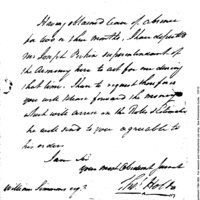 Having obtained leave of absence
for two or three months, I have deputed
Mr Joseph Perkin superintendant of
the Armoury here to act for me during
that time. I have to request therefore
you will please forward the moneys
which will accrue on the Rolls & Estimates
he will send to you agreeable to
his order.
I am Sir
your most Obedient Servant
William Simmons esqr